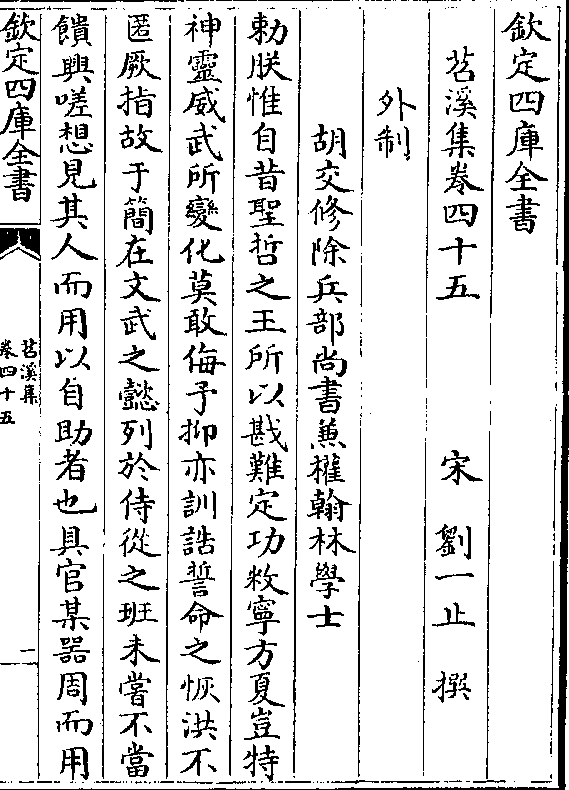 欽定四庫全書
苕溪集卷四十五
宋 劉一止 撰
外制
胡交修除兵部尚書兼權翰林學士
勅朕惟自昔聖哲之王所以戡難定功敉寧方夏豈特
神靈威武所變化莫敢侮予抑亦訓誥誓命之恢洪不
匿厥指故于簡在文武之懿列於侍從之班未嘗不當
饋興嗟想見其人而用以自助者也具官某器周而用
欽定四庫全書
苕溪集
卷四十五